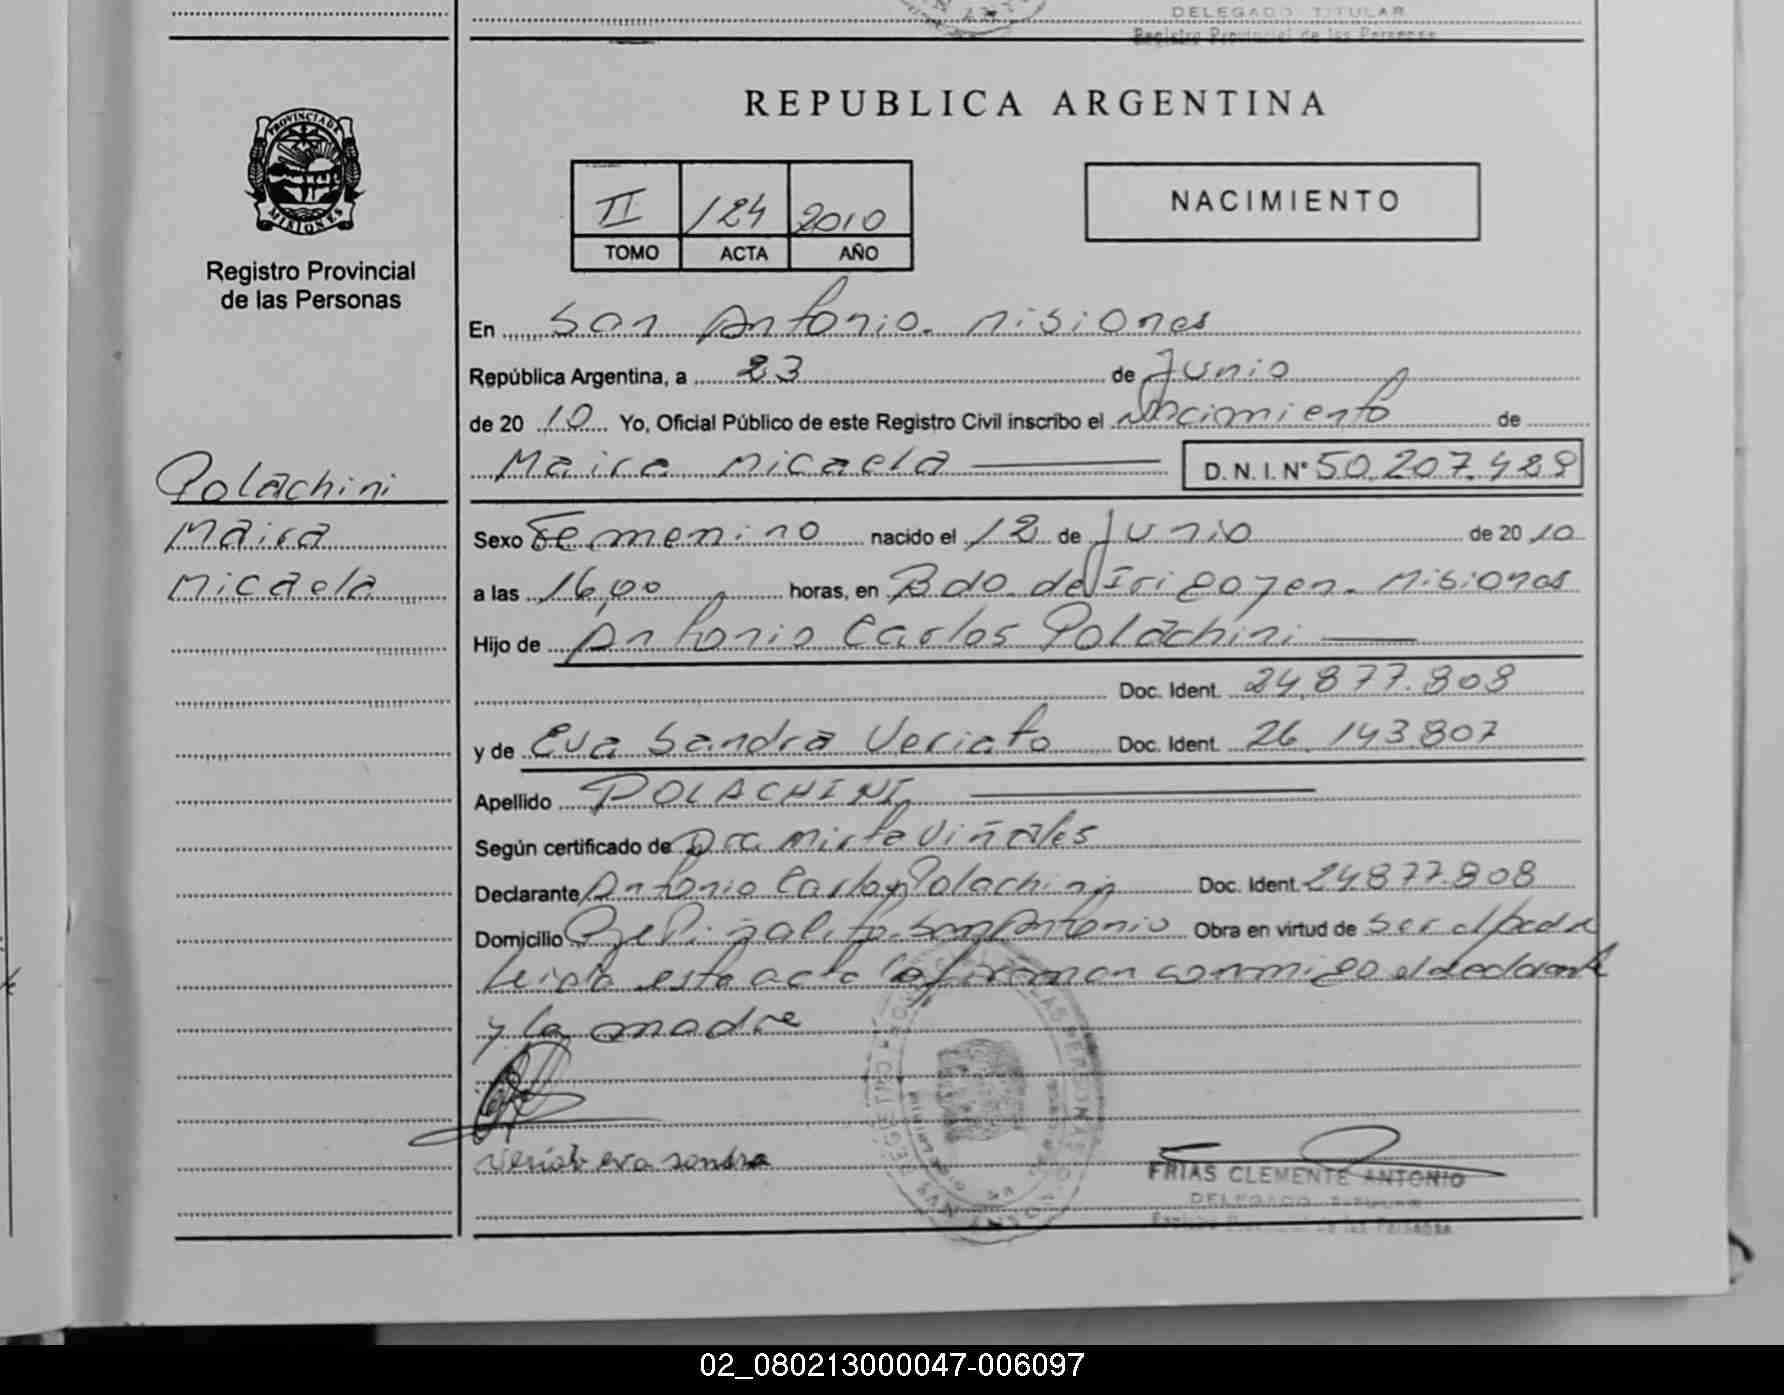 DELEGADO TITULAR
Registro Provincial de las Personas
REPUBLICA ARGENTINA
PROVINCIA DE
MISIONES
Registro Provincial
de las Personas
II 124 2010
TOMO ACTA AÑO
NACIMIENTO
En San Antonio. Misiones
República Argentina, a 23 de Junio
de 2010 Yo, Oficial Público de este Registro Civil inscribo el Nacimiento de
Maira Micaela D. N. I. N° 50.207.428
Polachini
Maira
Micaela
Sexo Femenino nacido el 12 de Junio de 2010
a las 16,00 horas, en Bdo. de Irigoyen. Misiones
Hijo de Antonio Carlos Polachini
Doc. Ident. 24.877.808
y de Eva Sandra Veriato Doc. Ident. 26.143.807
Apellido POLACHINI
Según certificado de Dra Mirta Viñales
Declarante Antonio Carlos Polachini Doc. Ident. 24877.808
Domicilio San Antonio Obra en virtud de ser el padre
Leida esta acta la firman conmigo el declarante
y la madre
eva sandra
FRIAS CLEMENTE ANTONIO
DELEGADO TITULAR
Registro Provincial de las Personas
02_080213000047-006097